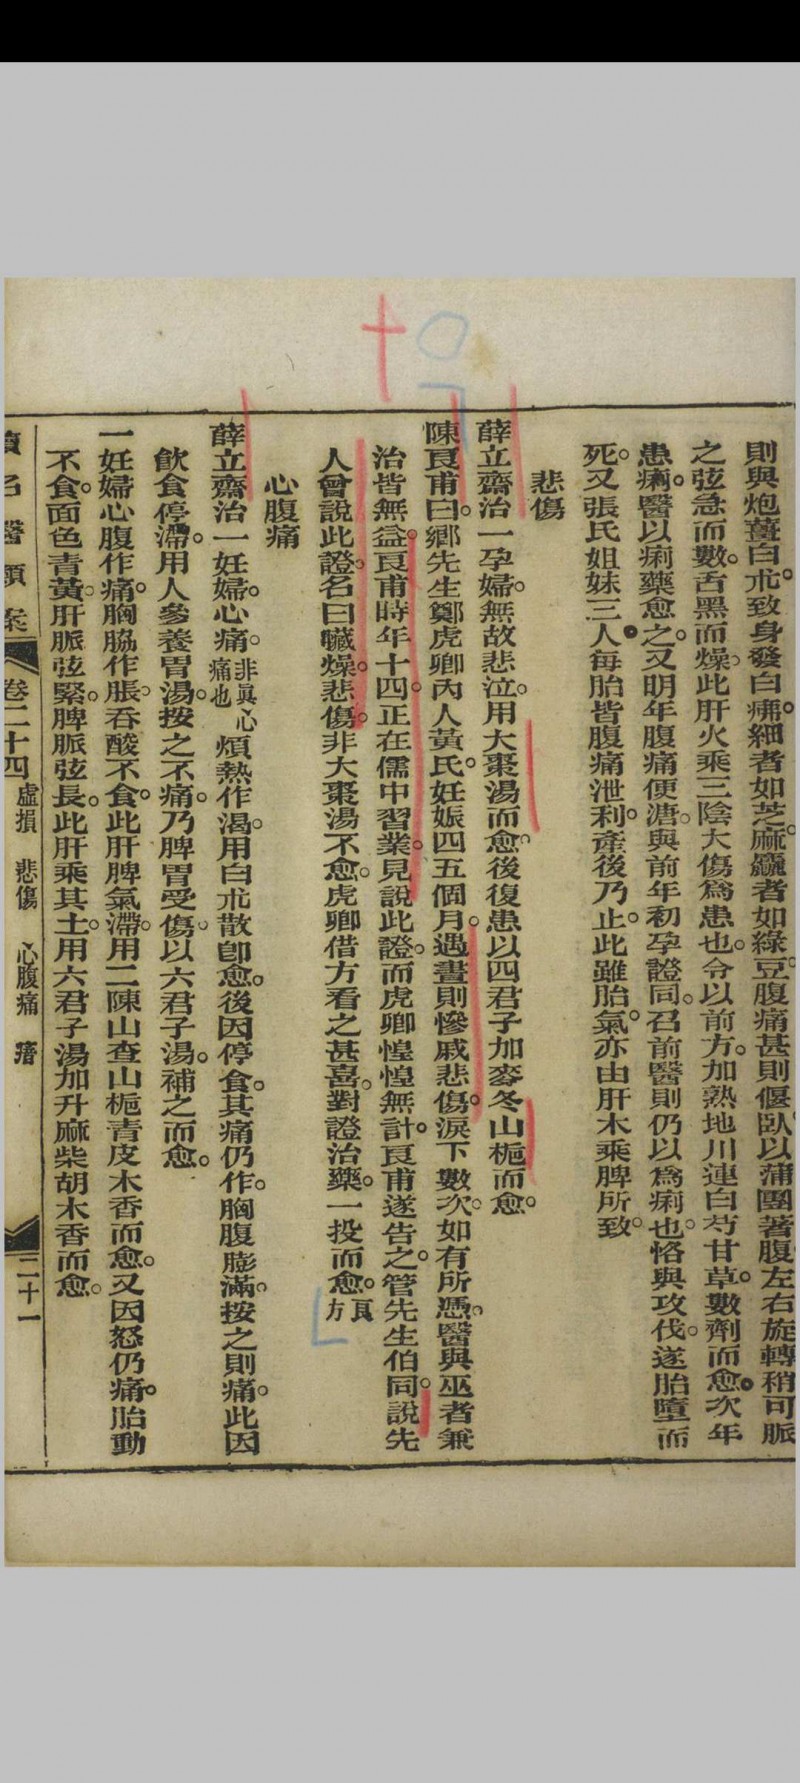 則與炮薑白朮致身發白疿細者如芝麻麤者如綠豆腹痛甚則偃臥以蒲團著腹左右旋轉稍可脈
之弦急而數舌黑而燥此肝火乘三陰大傷為患也令以前方加熟地川連白芍甘草數劑而愈次年
患痢醫以痢藥愈之又明年腹痛便溏與前年初孕證同召前醫則仍以為痢也恪與攻伐遂胎墮而
死又張氏姐妹三人每胎皆腹痛泄利產後乃止此雖胎氣亦由肝木乘脾所致
悲傷
薛立齋治一孕婦無故悲泣用大棗湯而愈後復患以四君子加麥冬山梔而愈
陳良甫曰鄉先生鄭虎卿內人黃氏妊娠四五個月遇晝則慘戚悲傷淚下數次如有所憑醫與巫者兼
治皆無益良甫時年十四正在儒中習業見說此證而虎卿惶惶無計良甫遂告之管先生伯同說先
人曾說此證名曰臟燥悲傷非大棗湯不愈虎卿借方看之甚喜對證治藥一投而愈良方
心腹痛
薛立齋治一妊婦心痛非真心痛也煩熱作渴用白朮散即愈後因停食其痛仍作胸腹膨滿按之則痛此因
飲食停滯用人參養胃湯按之不痛乃脾胃受傷以六君子湯補之而愈
一妊婦心腹作痛胸脇作脹吞酸不食此肝脾氣滯用二陳山查山梔青皮木香而愈又因怒仍痛胎動
不食面色青黃肝脈弦緊脾脈弦長此肝乘其土用六君子湯加升麻柴胡木香而愈
續名醫類案 卷二十四 虛損 悲傷 心腹痛 二十一